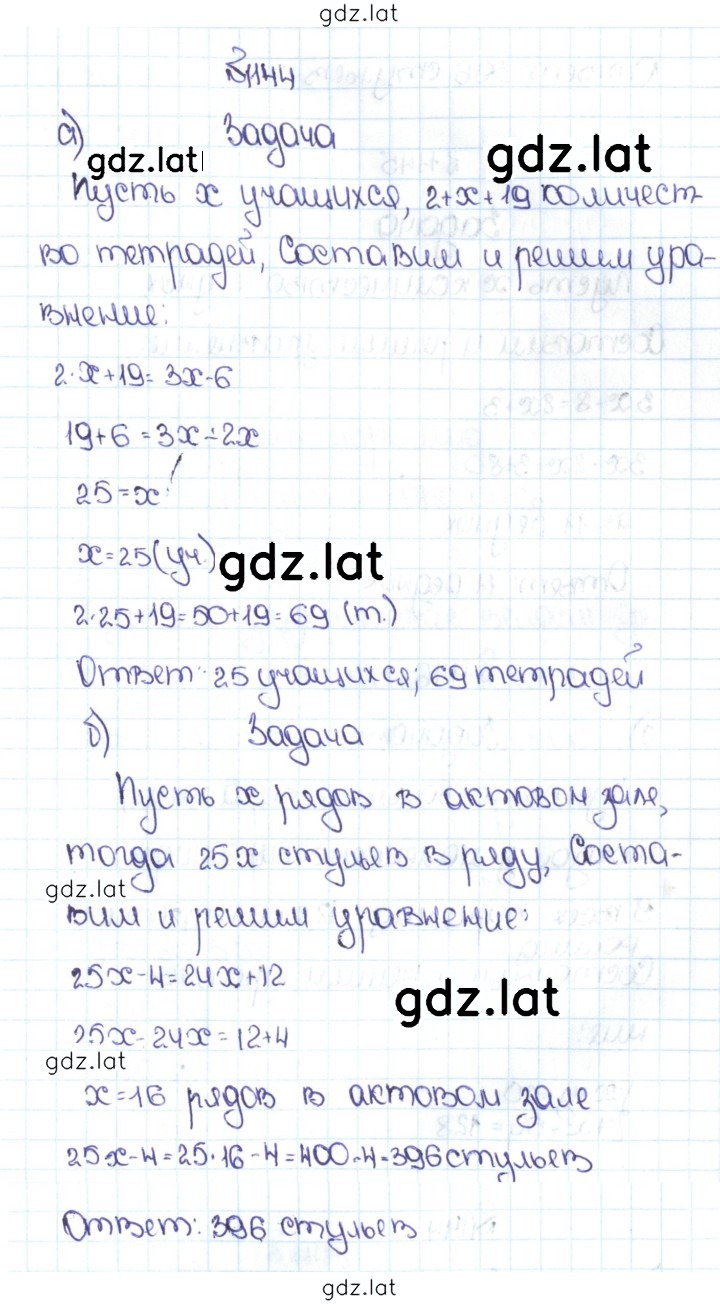 gdz.lat
1144
а) Задача
gdz.lat gdz.lat
Пусть x учащихся, 2+x+19 количест
во тетрадей, Составим и решим ура-
внение:
2·x+19=3x-6
19+6=3x-2x
25=x
x=25(уч.) gdz.lat
2·25+19=50+19=69 (т.)
Ответ: 25 учащихся; 69 тетрадей
б) Задача
Пусть x рядов в актовом зале,
тогда 25x стульев в ряду, Соста-
gdz.lat
вим и решим уравнение:
25x-4=24x+12
gdz.lat
25x-24x=12+4
gdz.lat
x=16 рядов в актовом зале
25x-4=25·16-4=400-4=396 стульев
Ответ: 396 стульев
gdz.lat